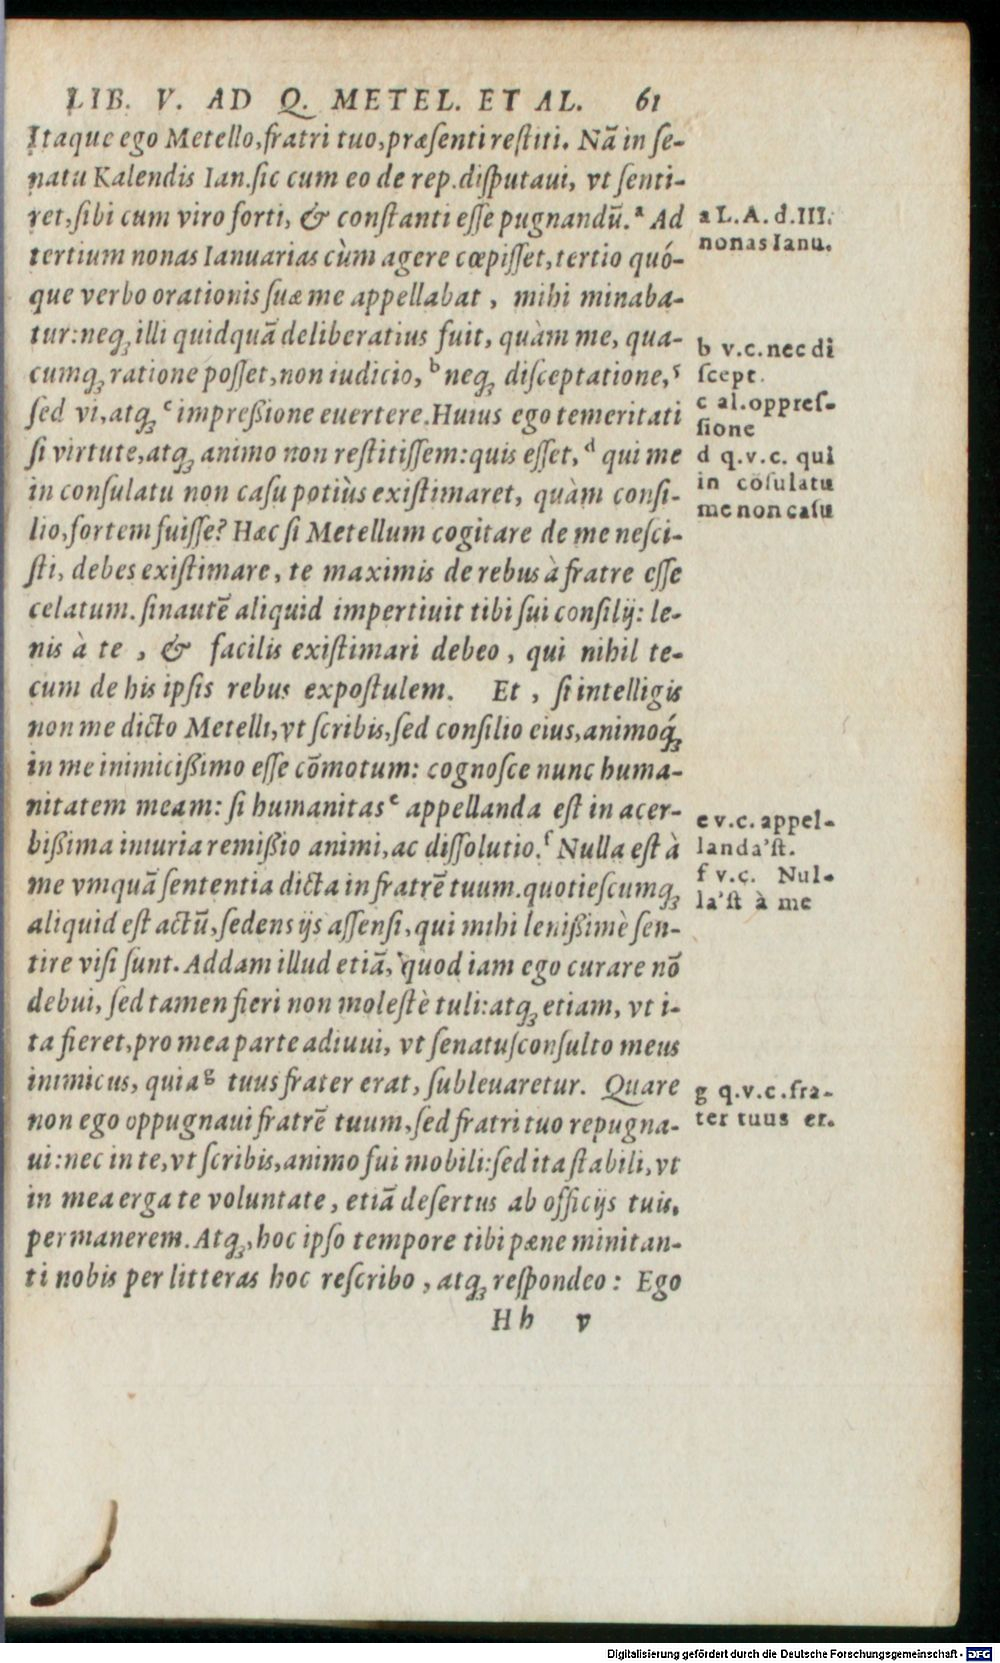 LIB. V. AD Q. METEL. ET AL. 61
Itaque ego Metello, fratri tuo, præsenti restiti. Nā in se-
natu Kalendis Ian. sic cum eo de rep. disputaui, vt senti-
ret, sibi cum viro forti, & constanti esse pugnandū.ᵃ Ad
tertium nonas Ianuarias cùm agere cœpisset, tertio quó-
que verbo orationis suæ me appellabat, mihi minaba-
tur: neqꝫ illi quidquā deliberatius fuit, quàm me, qua-
cumqꝫ ratione posset, non iudicio, ᵇ neqꝫ disceptatione,
sed vi, atqꝫ ᶜ impreßione euertere. Huius ego temeritati
si virtute, atqꝫ animo non restitissem: quis esset, ᵈ qui me
in consulatu non casu potiùs existimaret, quàm consi-
lio, fortem fuisse? Hæc si Metellum cogitare de me nesci-
sti, debes existimare, te maximis de rebus à fratre esse
celatum. sin autē aliquid impertiuit tibi sui consilij: le-
nis à te, & facilis existimari debeo, qui nihil te-
cum de his ipsis rebus expostulem. Et, si intelligis
non me dicto Metelli, vt scribis, sed consilio eius, animoq́ꝫ
in me inimicißimo esse cōmotum: cognosce nunc huma-
nitatem meam: si humanitas ᵉ appellanda est in acer-
bißima iniuria remißio animi, ac dissolutio.ᶠ Nulla est à
me vmquā sententia dicta in fratrē tuum. quotiescumqꝫ
aliquid est actū, sedens ijs assensi, qui mihi lenißimè sen-
tire visi sunt. Addam illud etiā, quod iam ego curare nō
debui, sed tamen fieri non molestè tuli: atqꝫ etiam, vt i-
ta fieret, pro mea parte adiuui, vt senatusconsulto meus
inimicus, quia ᵍ tuus frater erat, subleuaretur. Quare
non ego oppugnaui fratrē tuum, sed fratri tuo repugna-
ui: nec in te, vt scribis, animo fui mobili: sed ita stabili, vt
in mea erga te voluntate, etiā desertus ab officijs tuis,
permanerem. Atqꝫ, hoc ipso tempore tibi pæne minitan-
ti nobis per litteras hoc rescribo, atqꝫ respondeo: Ego
Hh v
a L. A. d. III.
nonas Ianu.
b v. c. nec di
scept.
c al. oppres-
sione
d q. v. c. qui
in cōsulatu
me non casu
e v. c. appel-
landa'st.
f v. c. Nul-
la'st à me
g q. v. c. fra-
ter tuus er.
Digitalisierung gefördert durch die Deutsche Forschungsgemeinschaft - DFG